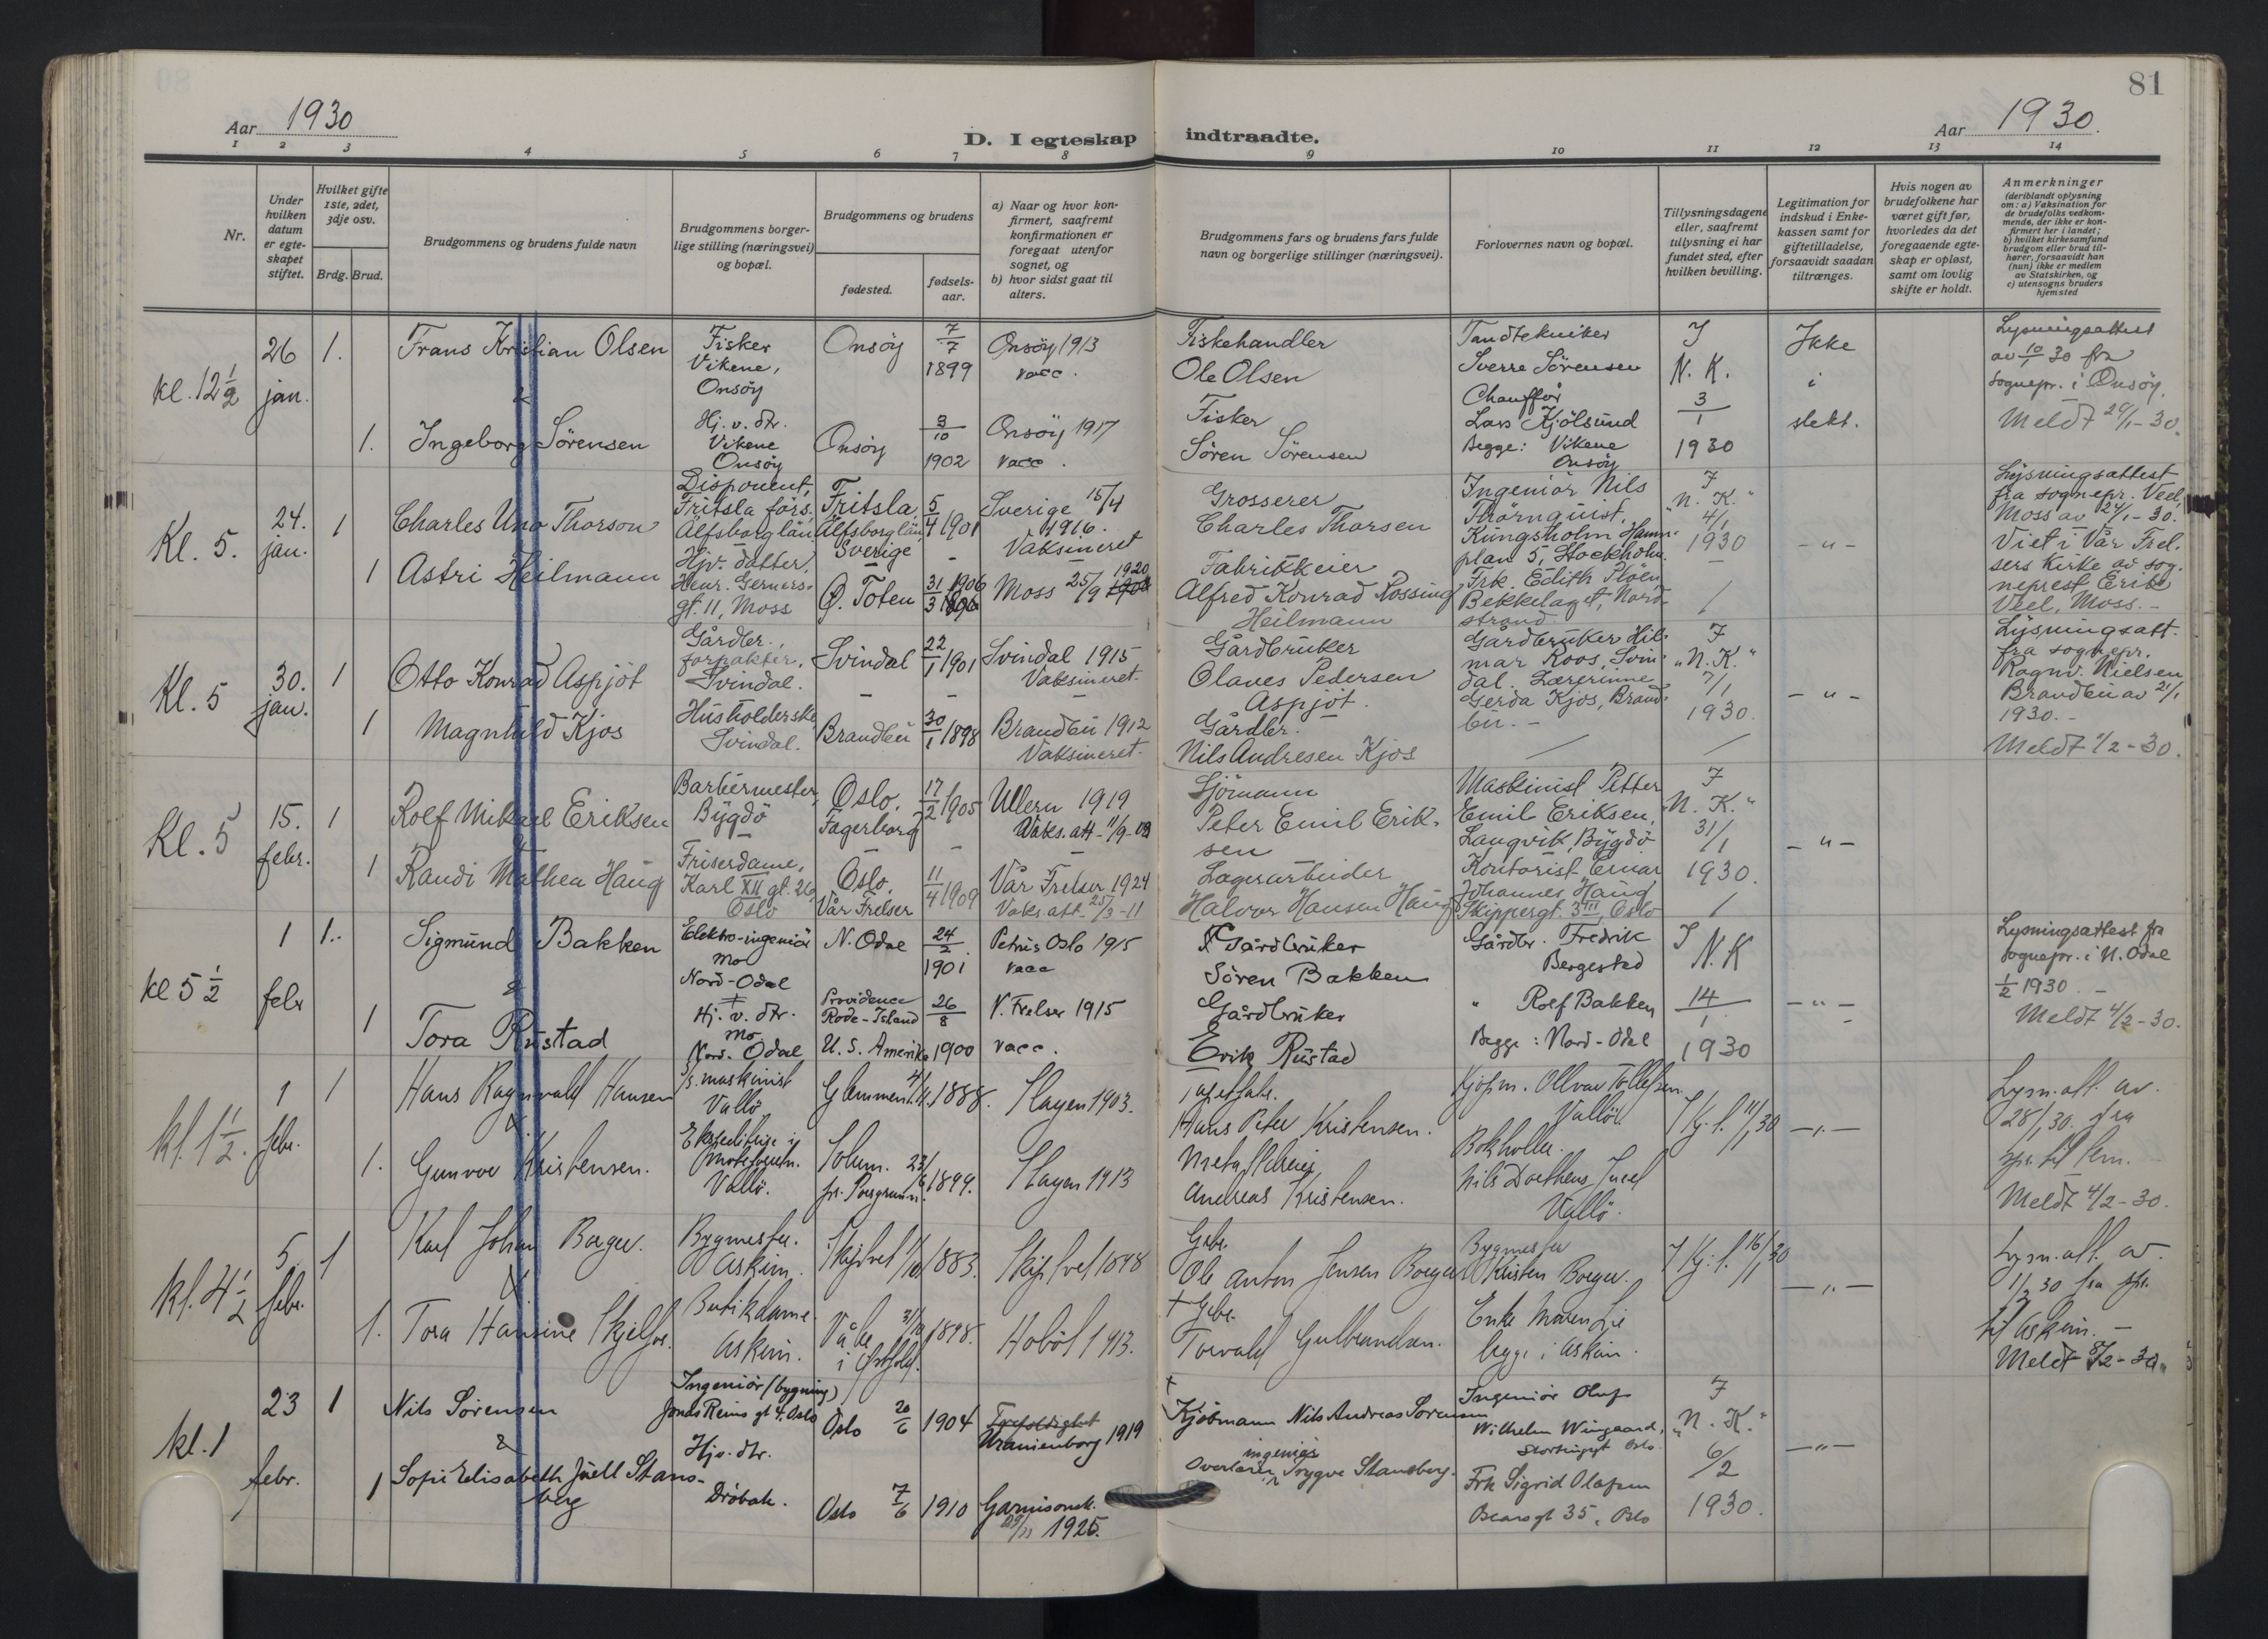 81
Aar 1930
D. I egteskap indtraadte.
Aar 1930.
1 2 3 4 5 6 7 8 9 10 11 12 13 14
Nr.
Under hvilken datum er egte-skapet stiftet.
Hvilket gifte 1ste, 2det, 3dje osv.
Brdg. Brud.
Brudgommens og brudens fulde navn
Brudgommens borger-lige stilling (næringsvei) og bopæl.
Brudgommens og brudens
fødested.
fødsels-aar.
a) Naar og hvor kon-firmert, saafremt konfirmationen er foregaat utenfor sognet, og
b) hvor sidst gaat til alters.
Brudgommens fars og brudens fars fulde navn og borgerlige stillinger (næringsvei).
Forlovernes navn og bopæl.
Tillysningsdagene eller, saafremt tillysning ei har fundet sted, efter hvilken bevilling.
Legitimation for indskud i Enke-kassen samt for giftetilladelse, forsaavidt saadan tiltrænges.
Hvis nogen av brudefolkene har været gift før, hvorledes da det foregaaende egte-skap er opløst, samt om lovlig skifte er holdt.
Anmerkninger
(deriblandt oplysning om: a) Vaksination for de brudefolks vedkom-mende, der ikke er kon-firmert her i landet; b) hvilket kirkesamfund brudgom eller brud til-hører, forsaavidt han (hun) ikke er medlem av Statskirken, og c) utensogns bruders hjemsted
kl. 12 1/2
26 jan.
1.
Frans Kristian Olsen
Fisker Vikene, Onsöy
Onsöy
7/7 1899
Onsöy 1913 vacc.
Fiskehandler Ole Olsen
Tandtekniker Sverre Sörensen
Chauffør Lars Kjölsund
Begge: Vikene Onsöy
I N. K. 3/1 1930
Ikke i slekt.
Lysningsattest av 10/1 30 fra sognepr. i Onsöy.
Meldt 29/1-30.
&
1.
Ingeborg Sörensen
Hj. v. dtr. Vikene Onsöy
Onsöy
3/10 1902
Onsöy 1917 vacc.
Fisker Sören Sörensen
Kl. 5.
24. jan.
1
Charles Uno Thorson
Disponent, Fritsla förs. Älfsborg län.
Fritsla, Älfsborg län Sverige
5/4 1901
Sverige 15/4 1916. Vaksineret
Grosserer Charles Thorsen
Ingeniör Nils Thörnquist, Kungsholm Hamn-plan 5, Stockholm.
Frk. Edith Plöen Bekkelaget, Nord-strand
I "N. K." 4/1 1930
- " -
Lysningsattest fra sognepr. Veel, Moss av 24/1-30. Viet i Vår Frel-sers Kirke av sog-neprest Erik Veel, Moss. -
1
Astri Heilmann
Hjv. datter, Henr. Gerners-gt. 11, Moss
Ø. Toten
31/3 1906
Moss 25/9 1920
Fabrikkeier Alfred Konrad Rossing Heilmann
Kl. 5
30. jan.
1
Otto Konrad Aspjöt
Gårdbr. forpakter, Svindal.
Svindal
22/1 1901
Svindal 1915 Vaksineret.
Gårdbruker Olaves Pedersen Aspjöt.
Gårdbruker Hil-mar Roos, Svin-dal. Lærerinne Gerda Kjos, Brand-bu. -
I "N. K." 7/1 1930.
- " -
Lysningsatt. fra sognepr. Ragnv. Nielsen Brandbu av 21/1 1930. -
Meldt 1/2-30.
1
Magnhild Kjos
Husholderske Svindal.
Brandbu
30/1 1898
Brandbu 1912 Vaksineret.
Gårdbr. Nils Andresen Kjos
Kl. 5
15. febr.
1
Rolf Mikael Eriksen
Barbermester, Bygdö
Oslo. Fagerborg
17/2 1905
Ullern 1919 Vaks. att - 11/9-09
Sjömann Peter Emil Erik-sen
Maskinist Petter Emil Eriksen, Langvik, Bygdö
Kontorist Einar Johannes Haug Skippergt. 3 III, Oslo
I "N. K." 31/1 1930.
- " -
&
1
Randi Mathea Haug
Friserdame, Karl XII gt. 26, Oslo
Oslo. Vår Frelser
11/4 1909
Vår Frelser 1924 Vaks. att. 25/3-11
Lagerarbeider Halvor Hansen Haug
kl 5 1/2
1 febr
1.
Sigmund Bakken
Elektro-ingeniör Mo Nord-Odal
N. Odal
24/2 1901
Petrus Oslo 1915 vacc
Gårdbruker Sören Bakken
Gårdbr. Fredrik Bergestad
" Rolf Bakken
Begge: Nord-Odal
I N. K 14/1 1930
- " -
Lysningsattest fra sognepr. i N. Odal 1/2 1930. -
Meldt 4/2-30.
&
1
Tora Rustad
Hj. v. dtr. Mo Nord-Odal
Providence Rode-Island U. S. Amerika
26/8 1900
V. Frelser 1915 vacc.
Gårdbruker Erik Rustad
kl. 1 1/2.
1 febr.
1
Hans Ragnvald Hansen
maskinist Vallö
Glemmen
1888.
Slagen 1903.
Hans Peter Kristensen.
Kjøpm. Ollvar Tollefsen Vallö.
11/1 30
- " -
Lysn. att. av. 28/1 30. fra
Meldt 4/2-30.
&
1.
Gunvor Kristensen.
Vallö.
Solum. pr. Porsgrunn.
1899.
Slagen 1913
Andreas Kristensen.
Bokholder Nils Juell Vallö.
kl. 4 1/2
5. febr.
1
Karl Johan Borger.
Bygmester. Askim.
Skiptvet
1883.
Skiptvet 1898
Gbr. Ole Anton Jensen Borger
Bygmester Kristen Borger.
16/1 30
- " -
Lysn. att. av. 1/2 30 fra spr. til Askim. -
Meldt 8/2-30.
&
1.
Tora Hansine Skjelfos.
Butikdame. Askim.
Våler i Østfold.
31/10 1898.
Hobøl 1913.
† Gbr. Torvald Gulbrandsen.
Enke Maren Lie
begge i Askim.
kl. 1
23 febr.
1
Nils Sörensen
Ingeniör (bygning) Jonas Reins gt 4. Oslo
Oslo
20/6 1904
Uranienborg 1919
† Kjöbmann Nils Andreas Sörensen
Ingeniör Oluf Wilhelm Wingaard, Stortingsgt Oslo.
Frk Sigrid Olafsen
35, Oslo
I "N. K." 6/2 1930.
- " -
&
1
Sofie Elisabeth Juell Stans-berg
Hjv. dtr. Dröbak.
Oslo
7/6 1910
Garnisonsk. 1925.
ingeniör Trygve Stansberg.